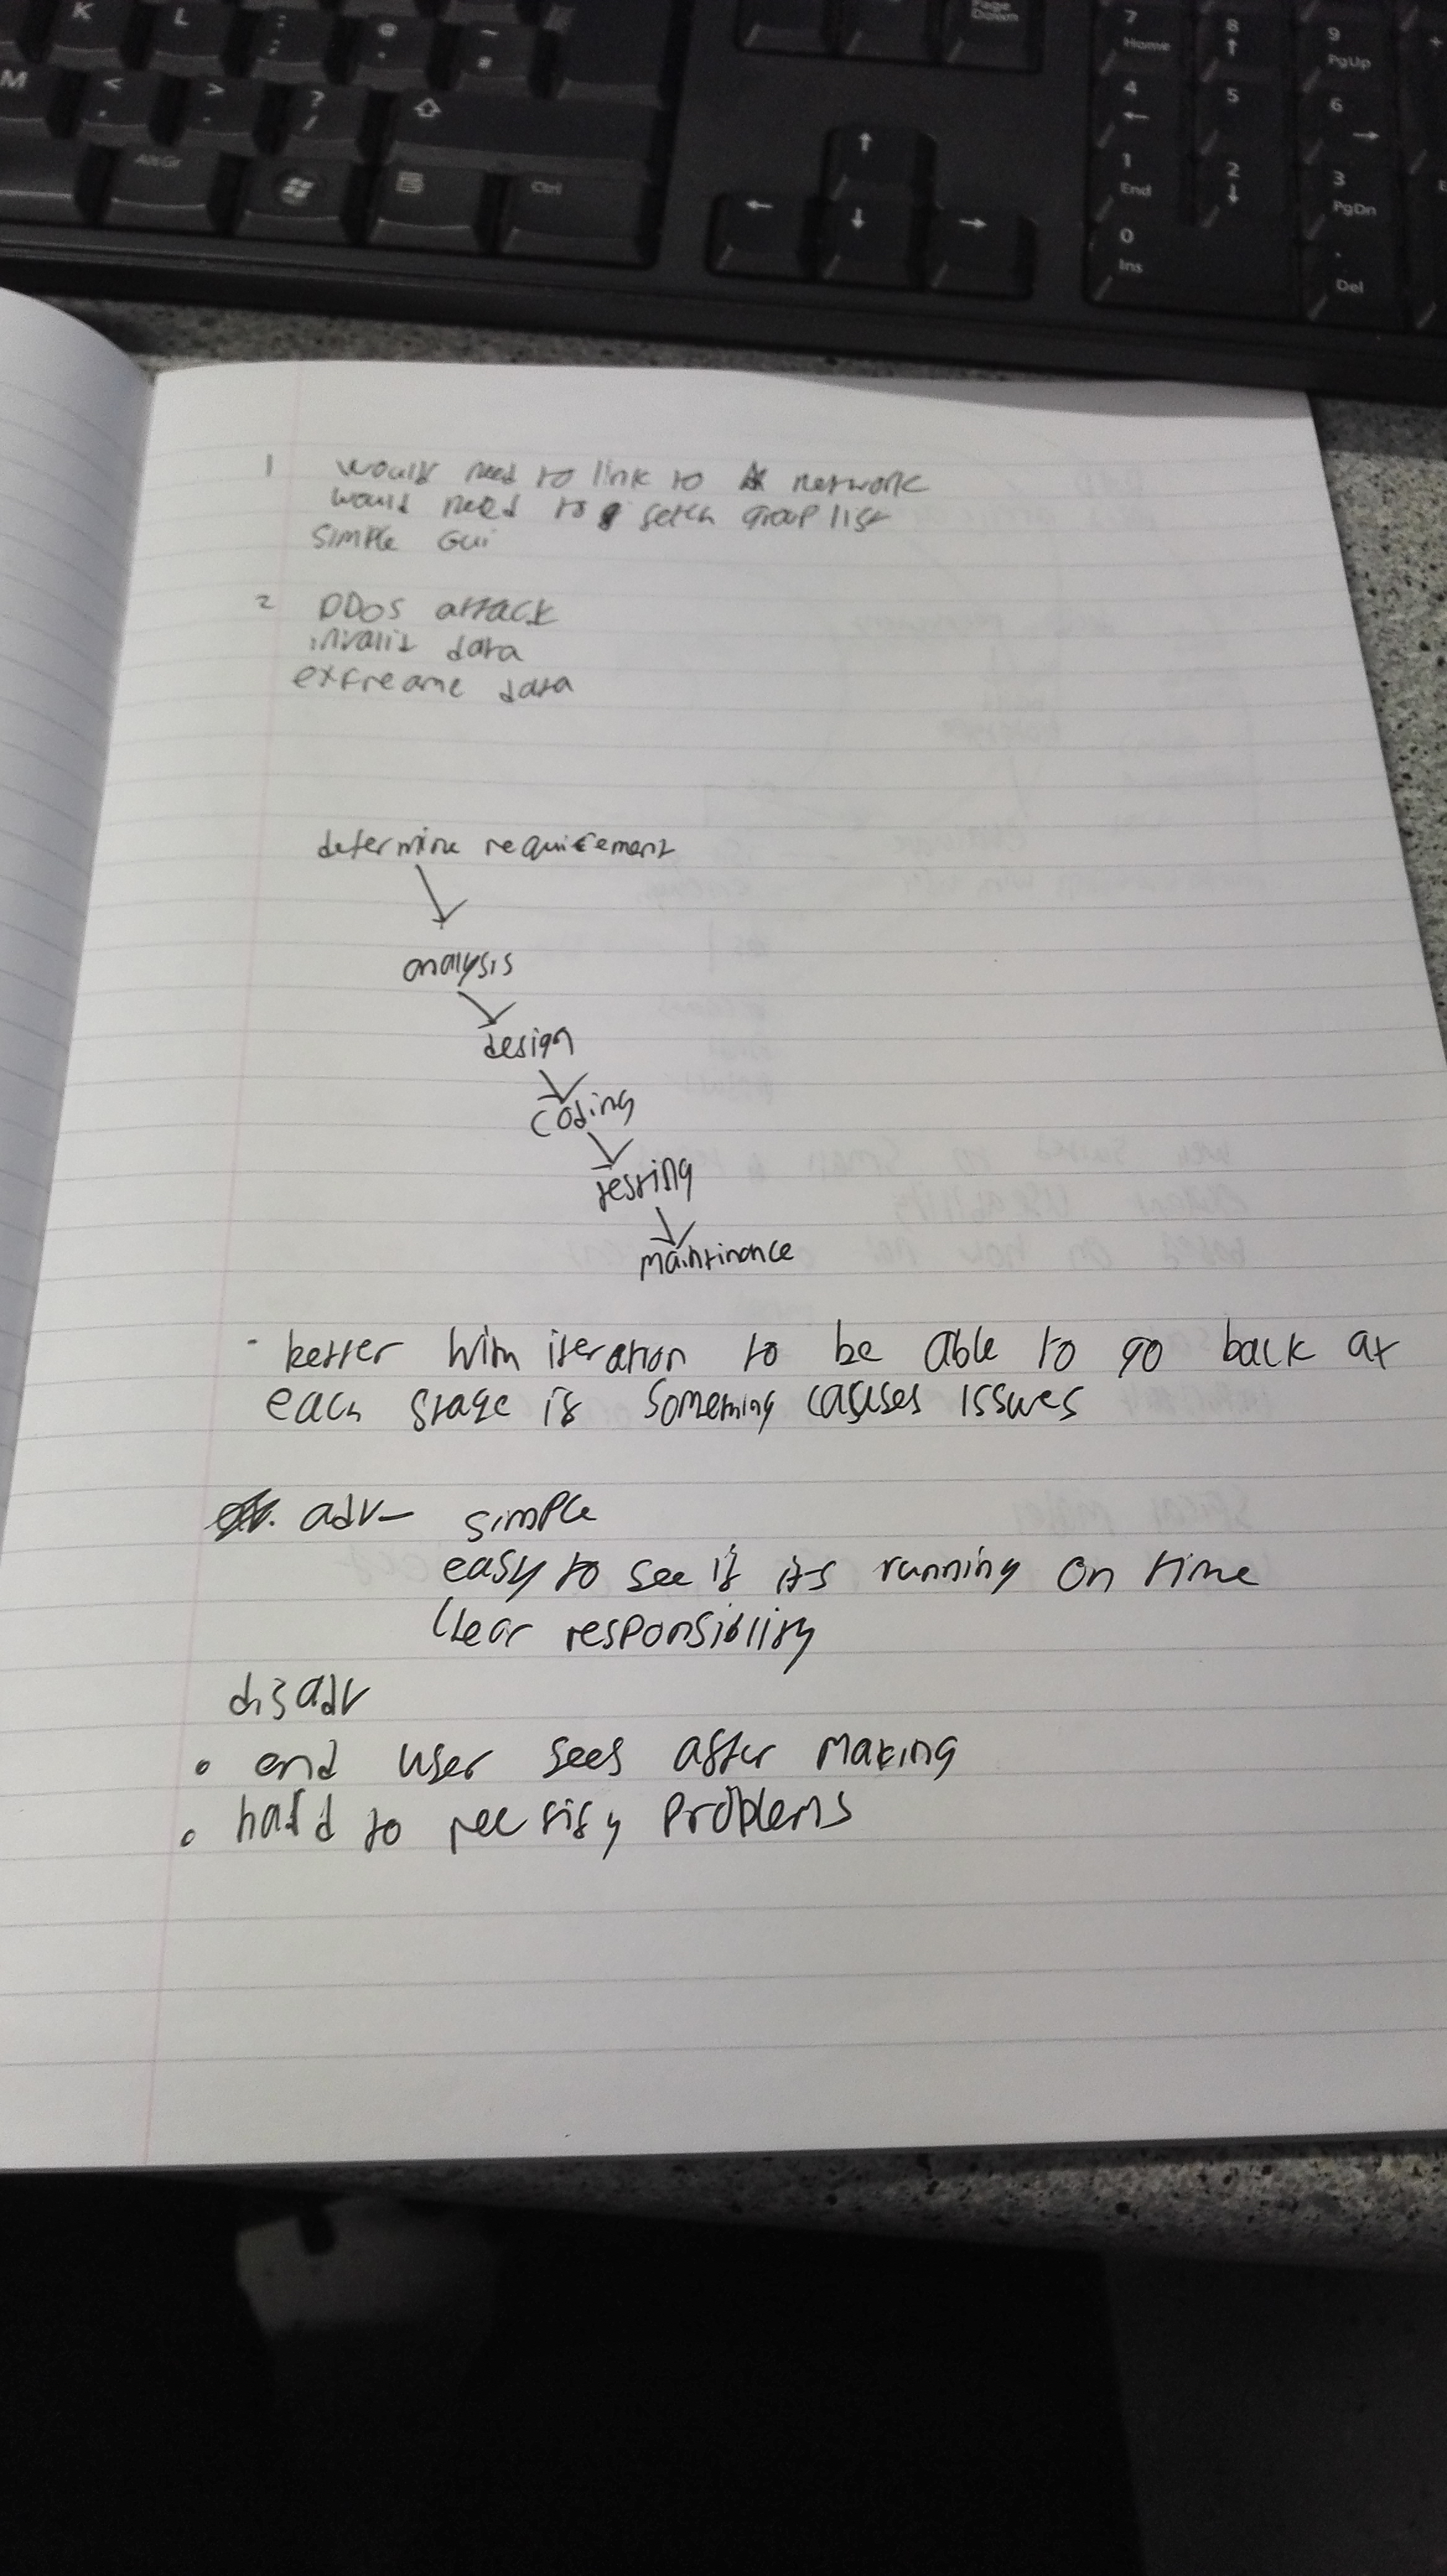 K L : ; @ ' ~ # Page Down 7 Home 8 ↑ 9 PgUp +
M < , > . ? / 4 ← 5 6 →
Alt Gr Ctrl ↑ 1 End 2 ↓ 3 PgDn
← ↓ → 0 Ins . Del
1 would need to link to network
would need to fetch group list
simple GUI
2 DDoS attack
invalid data
extreame data
determine requirement
analysis
design
coding
testing
maintinance
- better with iteration to be able to go back at
each stage if something causes issues
adv - simple
easy to see if its running on time
clear responsiblity
disadv
• end user sees after making
• hard to rectify problems